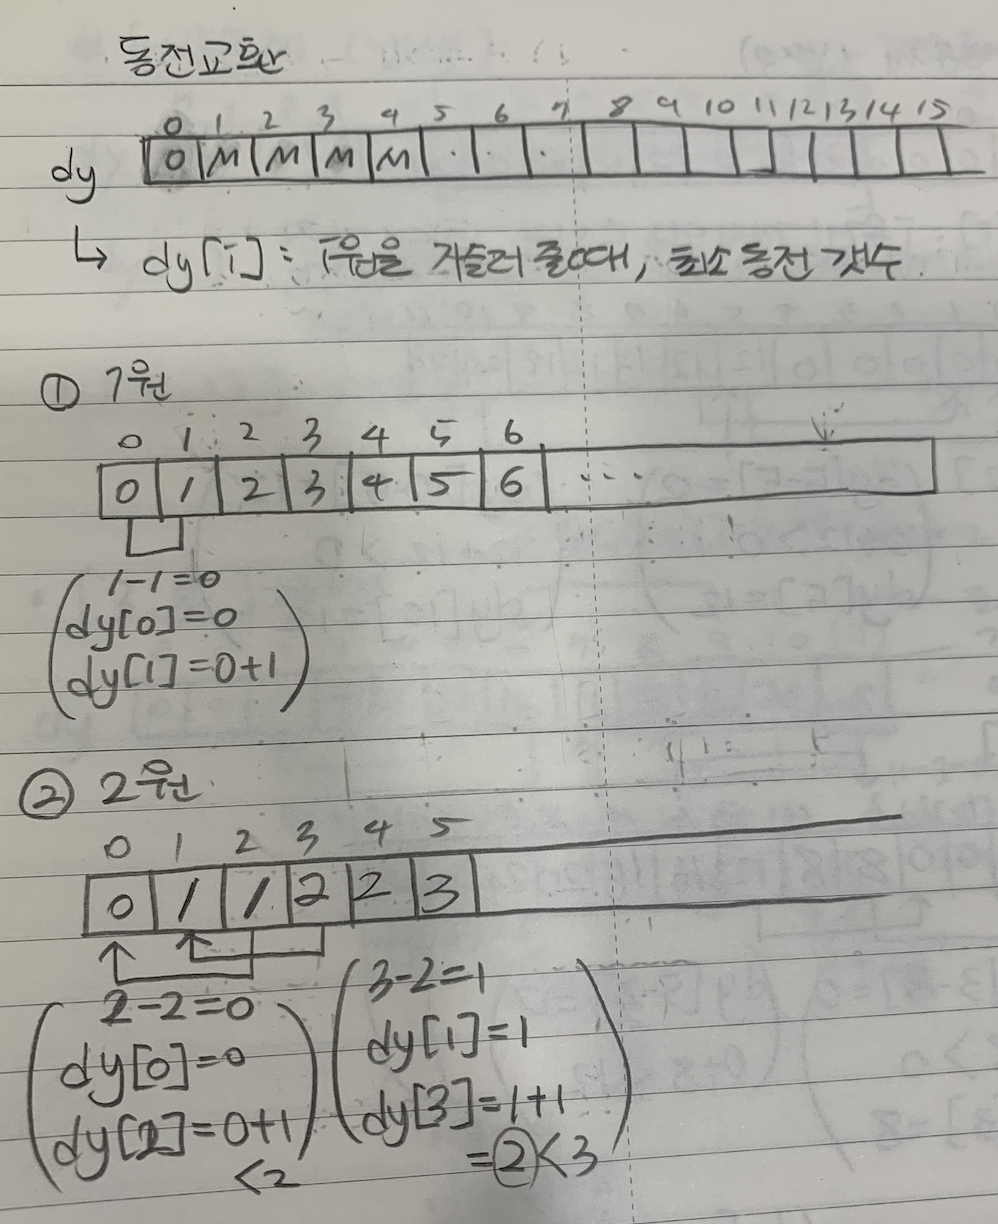 동전교환
0 1 2 3 4 5 6 7 8 9 10 11 12 13 14 15
dy 0 M M M M . . .
↳ dy[i] : i원을 거슬러 줄때, 최소 동전 갯수.
① 1원
0 1 2 3 4 5 6
0 1 2 3 4 5 6 ...
1-1=0
dy[0]=0
dy[1]=0+1
② 2원
0 1 2 3 4 5
0 1 1 2 2 3
2-2=0
dy[0]=0
dy[2]=0+1
<2
3-2=1
dy[1]=1
dy[3]=1+1
=②<3